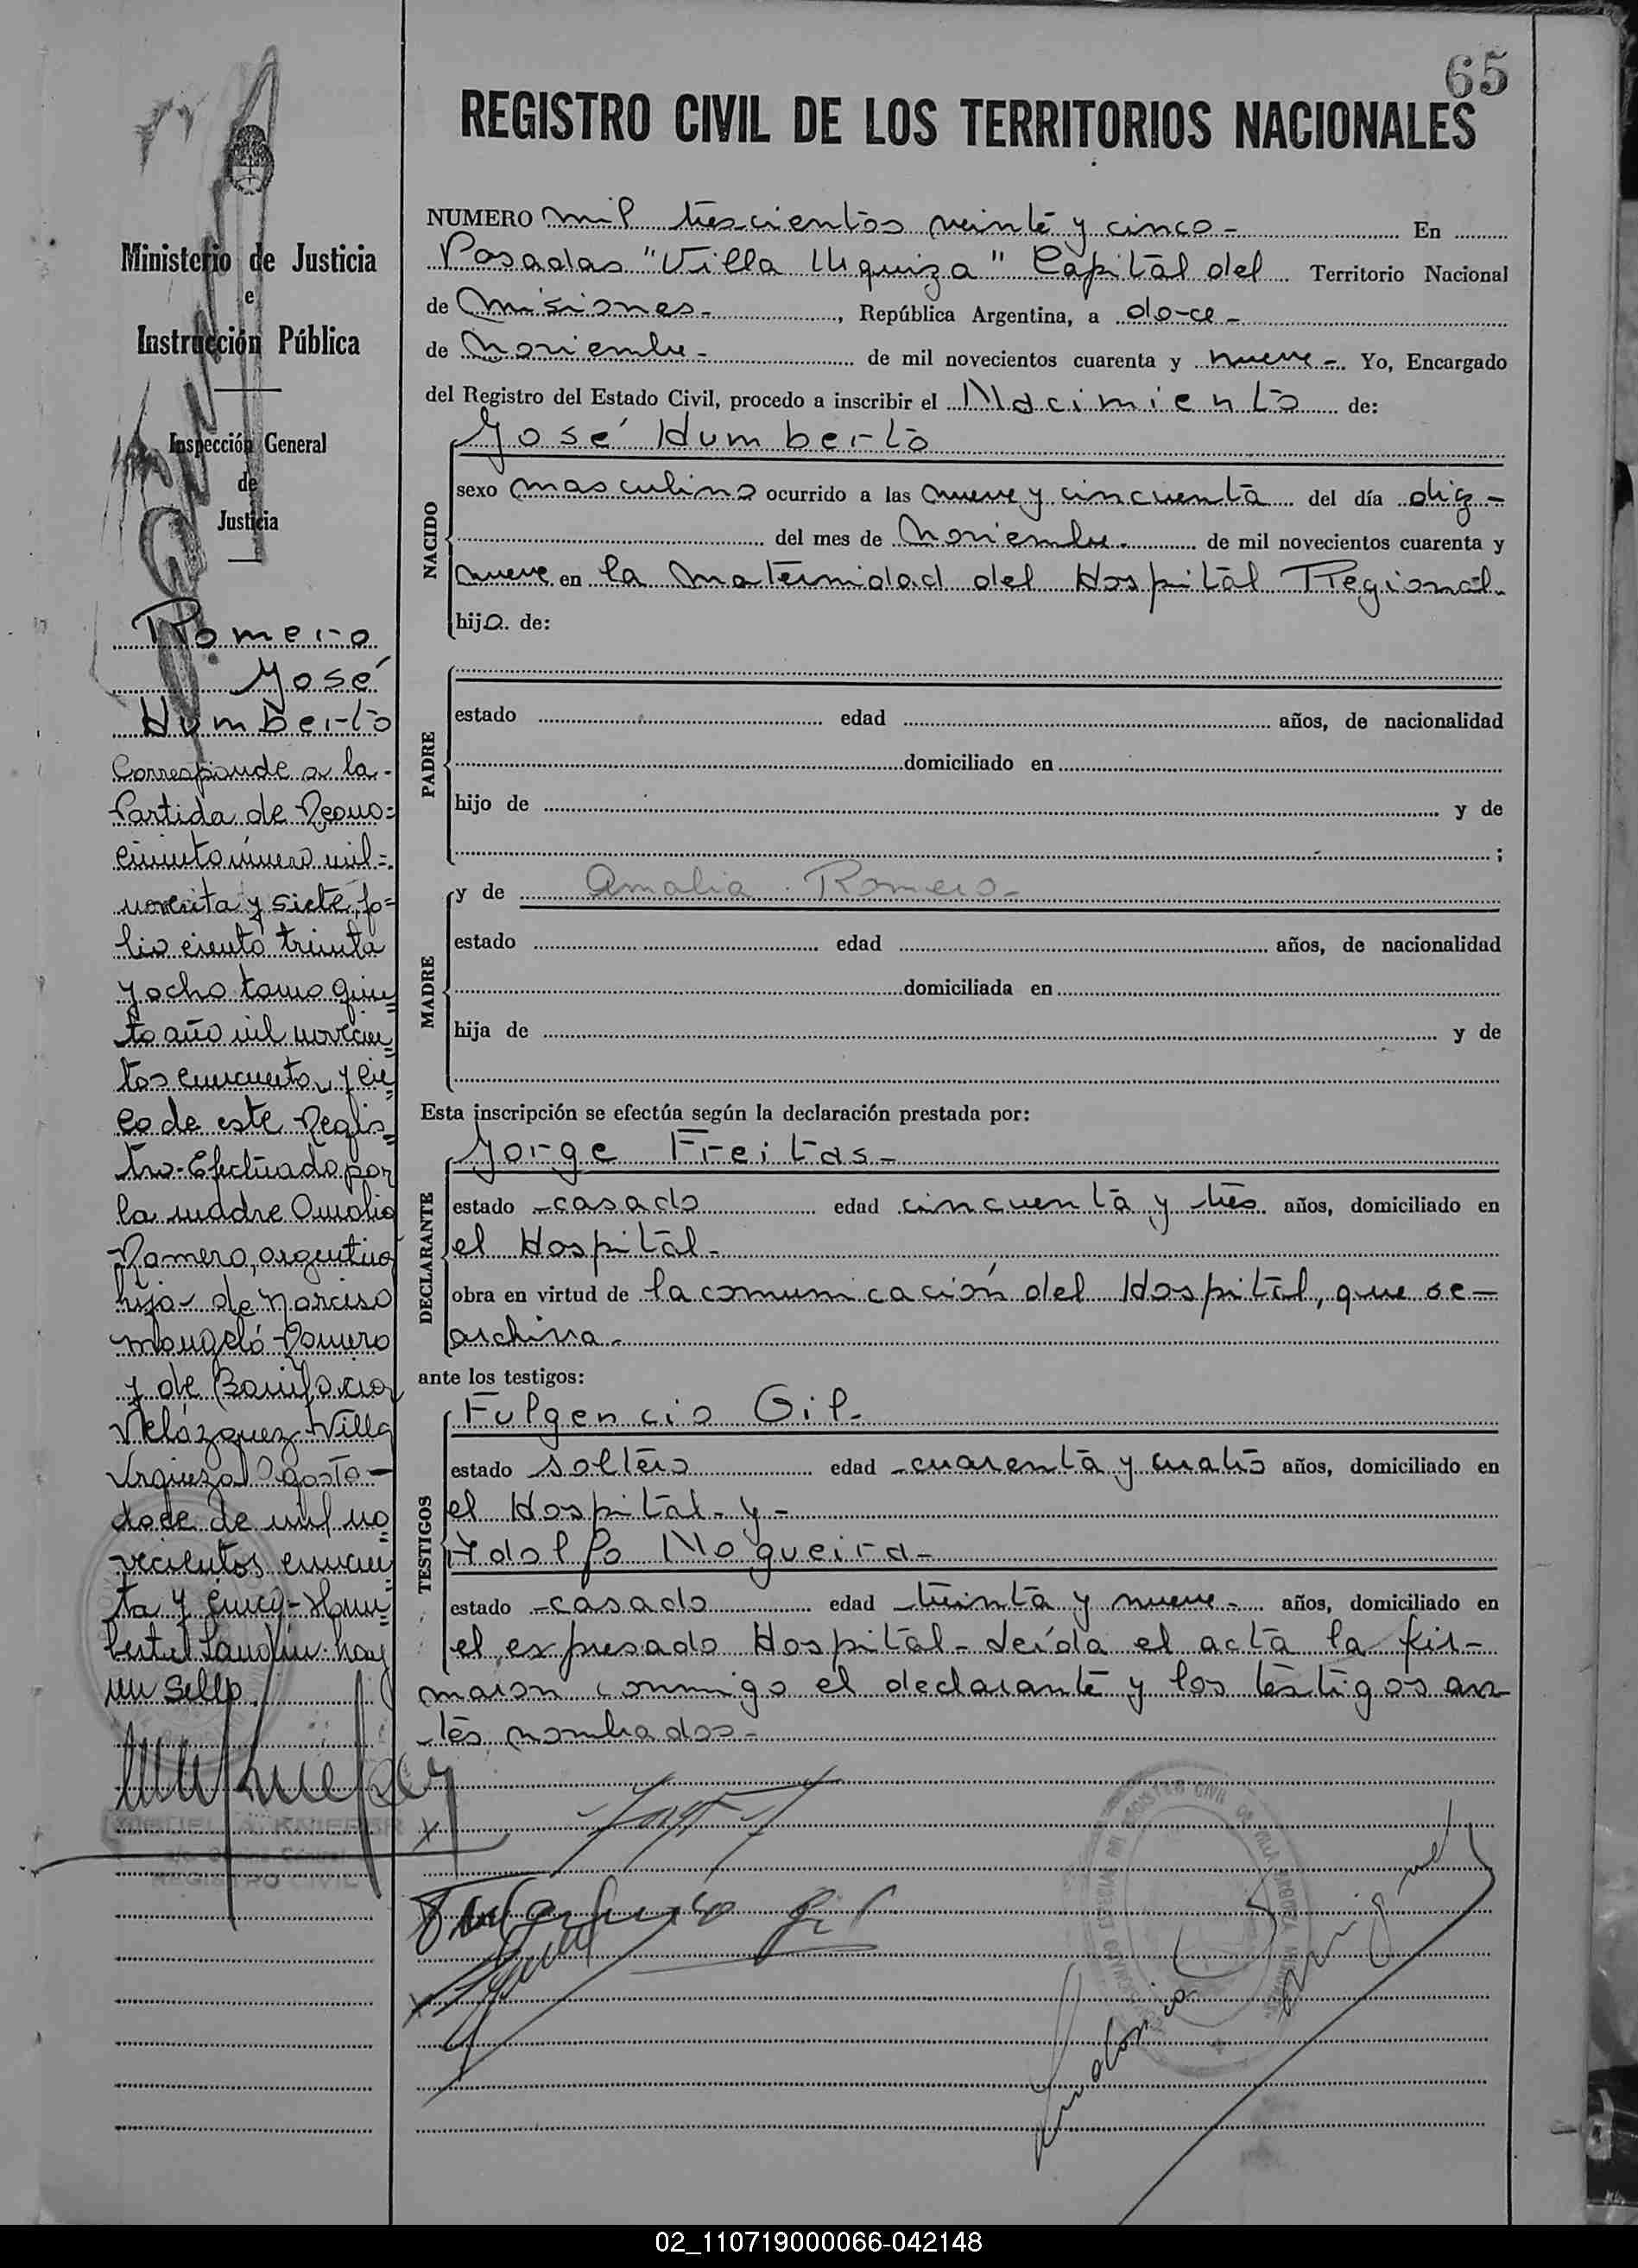 65
REGISTRO CIVIL DE LOS TERRITORIOS NACIONALES
Ministerio de Justicia
e
Instrucción Pública
Inspección General
de
Justicia
Romero
José
Humberto
Corresponde a la-
Partida de Recono=
cimiento número mil=
noventa y siete, fo=
lio ciento treinta
y ocho tomo quin=
to año mil novecien=
tos cincuenta y cin=
co de este Regis=
tro-Efectuado por
la madre Amalia
Romero, argentina
hija de Narciso
Romero
y de Bonifacia
Velázquez-Villa
Urquiza Agosto-
doce de mil no=
vecientos cincuen=
ta y cinco-Hum=
berto Landin-hay
un sello
REGISTRO CIVIL
NUMERO mil trescientos veinte y cinco- En
Posadas "Villa Urquiza" Capital del Territorio Nacional
de Misiones-, República Argentina, a doce-
de Noviembre- de mil novecientos cuarenta y nueve-. Yo, Encargado
del Registro del Estado Civil, procedo a inscribir el Nacimiento de:
NACIDO
José Humberto
sexo masculino ocurrido a las nueve y cincuenta del día diez-
del mes de Noviembre- de mil novecientos cuarenta y
nueve en la Maternidad del Hospital Regional-
hijo de:
PADRE
estado edad años, de nacionalidad
domiciliado en
hijo de y de
;
MADRE
y de Amalia Romero-
estado edad años, de nacionalidad
domiciliada en
hija de y de
Esta inscripción se efectúa según la declaración prestada por:
DECLARANTE
Jorge Freitas-
estado -casado edad cincuenta y tres años, domiciliado en
el Hospital-
obra en virtud de la comunicación del Hospital, que se-
archiva-
ante los testigos:
TESTIGOS
Fulgencio Gil-
estado soltero edad -cuarenta y cuatro años, domiciliado en
el Hospital- y-
Adolfo Nogueira-
estado -casado edad -treinta y nueve- años, domiciliado en
el expresado Hospital-Leída el acta la fir-
maron conmigo el declarante y los testigos an-
tes nombrados-
Fulgencio Gil
02_110719000066-042148